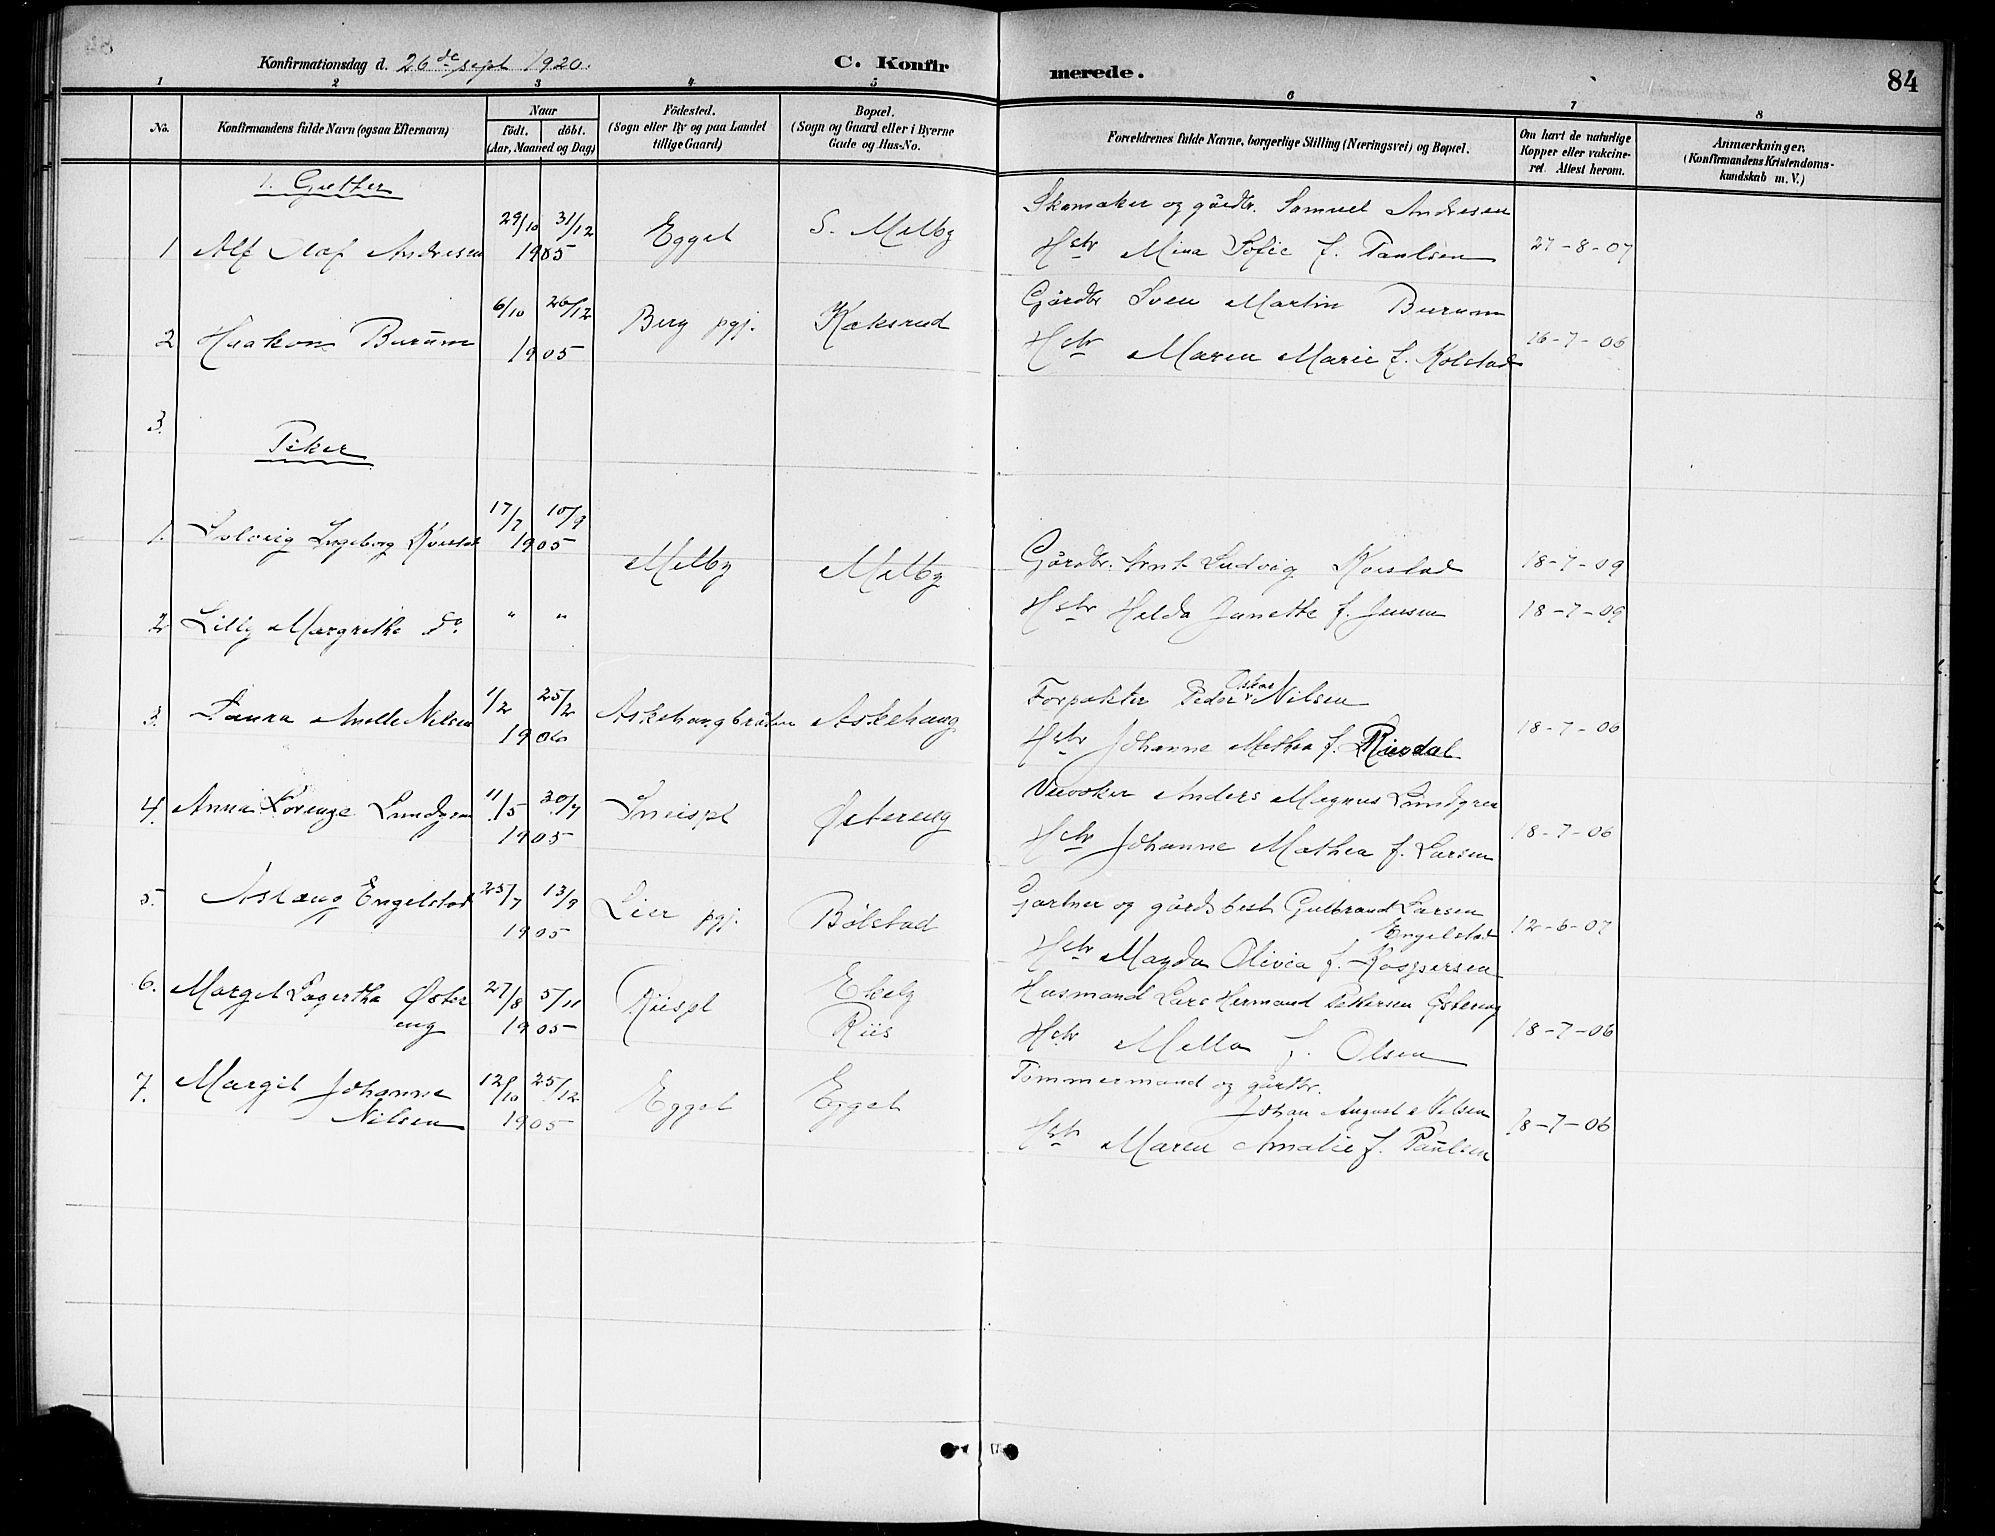 Konfirmationsdag d. 26de sept 1920. C. Konfir merede. 84
1 2 3 4 5 6 7 8
No. Konfirmandens fulde Navn (ogsaa Efternavn) Naar födt. döbt. (Aar, Maaned og Dag) Födested. (Sogn eller By og paa Landet tillige Gaard) Bopæl. (Sogn og Gaard eller i Byerne Gade og Hus-No. Forældrenes fulde Navne, borgerlige Stilling (Næringsvei) og Bopæl. Om havt de naturlige Kopper eller vakcineret. Attest herom. Anmærkninger. (Konfirmandens Kristendomskundskab m. V.)
1. Gutter
Skomaker og gårdbr. Samuel Andresen
1 Alf Olaf Andresen 29/10 31/12 1905 Egget S. Melby Hstr Mina Sofie f. Paulsen 27-8-07
Gårdbr Sven Martin Burum
2 Haakon Burum 6/10 26/12 1905 Berg pgj. Kæksrud Hstr Maren Marie f. Kolstad 16-7-06
3.
Piker
1. Solveig Ingeborg Korstad 17/7 10/9 1905 Melby Melby Gårdbr. Arnt Ludvig Korstad 18-7-09
2 Lilly Margrethe do. " " Hstr Hilda Janette f. Jensen 18-7-09
Forpakter Peder Oskar Nilsen
3. Laura Nilsen 1/2 25/2 1906 Askehaugbråten Askehaug Hstr Johanne Mathea f. 18-7-06
Anders Magnus Lundgren
4. Anna Lorenze Lundgren 11/5 30/7 1905 Østereng Hstr Johanne Mathea f. Larsen 18-7-06
Gartner og gårdsbest. Gulbrand Larsen
Engelstad
5. Aslaug Engelstad 25/7 13/9 1905 Lier pgj. Bølstad Hstr Magda Olivia f. Kaspersen 12-6-07
6. Margit Lagertha Østereng 27/8 5/11 1905 Riispl Ekely Riis Husmand Lars Hermand Pettersen Østereng
Hstr Mella f. Olsen 18-7-06
Tømmermand og gårdbr.
Johan August Nilsen
7. Margit Johanne Nilsen 12/10 25/12 1905 Egget Egget Hstr Maren Amalie f. Paulsen 18-7-06